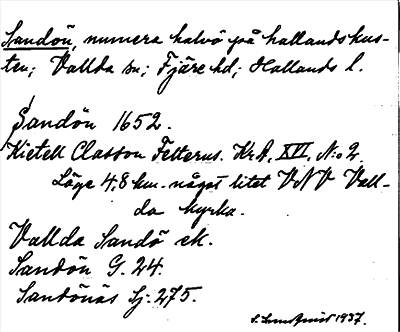 Sandön, numera halvö på hallandskus-
ten; Vallda sn; Fjäre hd; Hallands l.
Sandön 1652.
Kietell Classon Felterus. Kr.A, XVI, N:o 2.
Läge 4,8 km. något litet VNV Vall-
da kyrka.
Vallda Sandö ek.
Sandön G. 24.
Sandönäs Sj. 275.
1937.